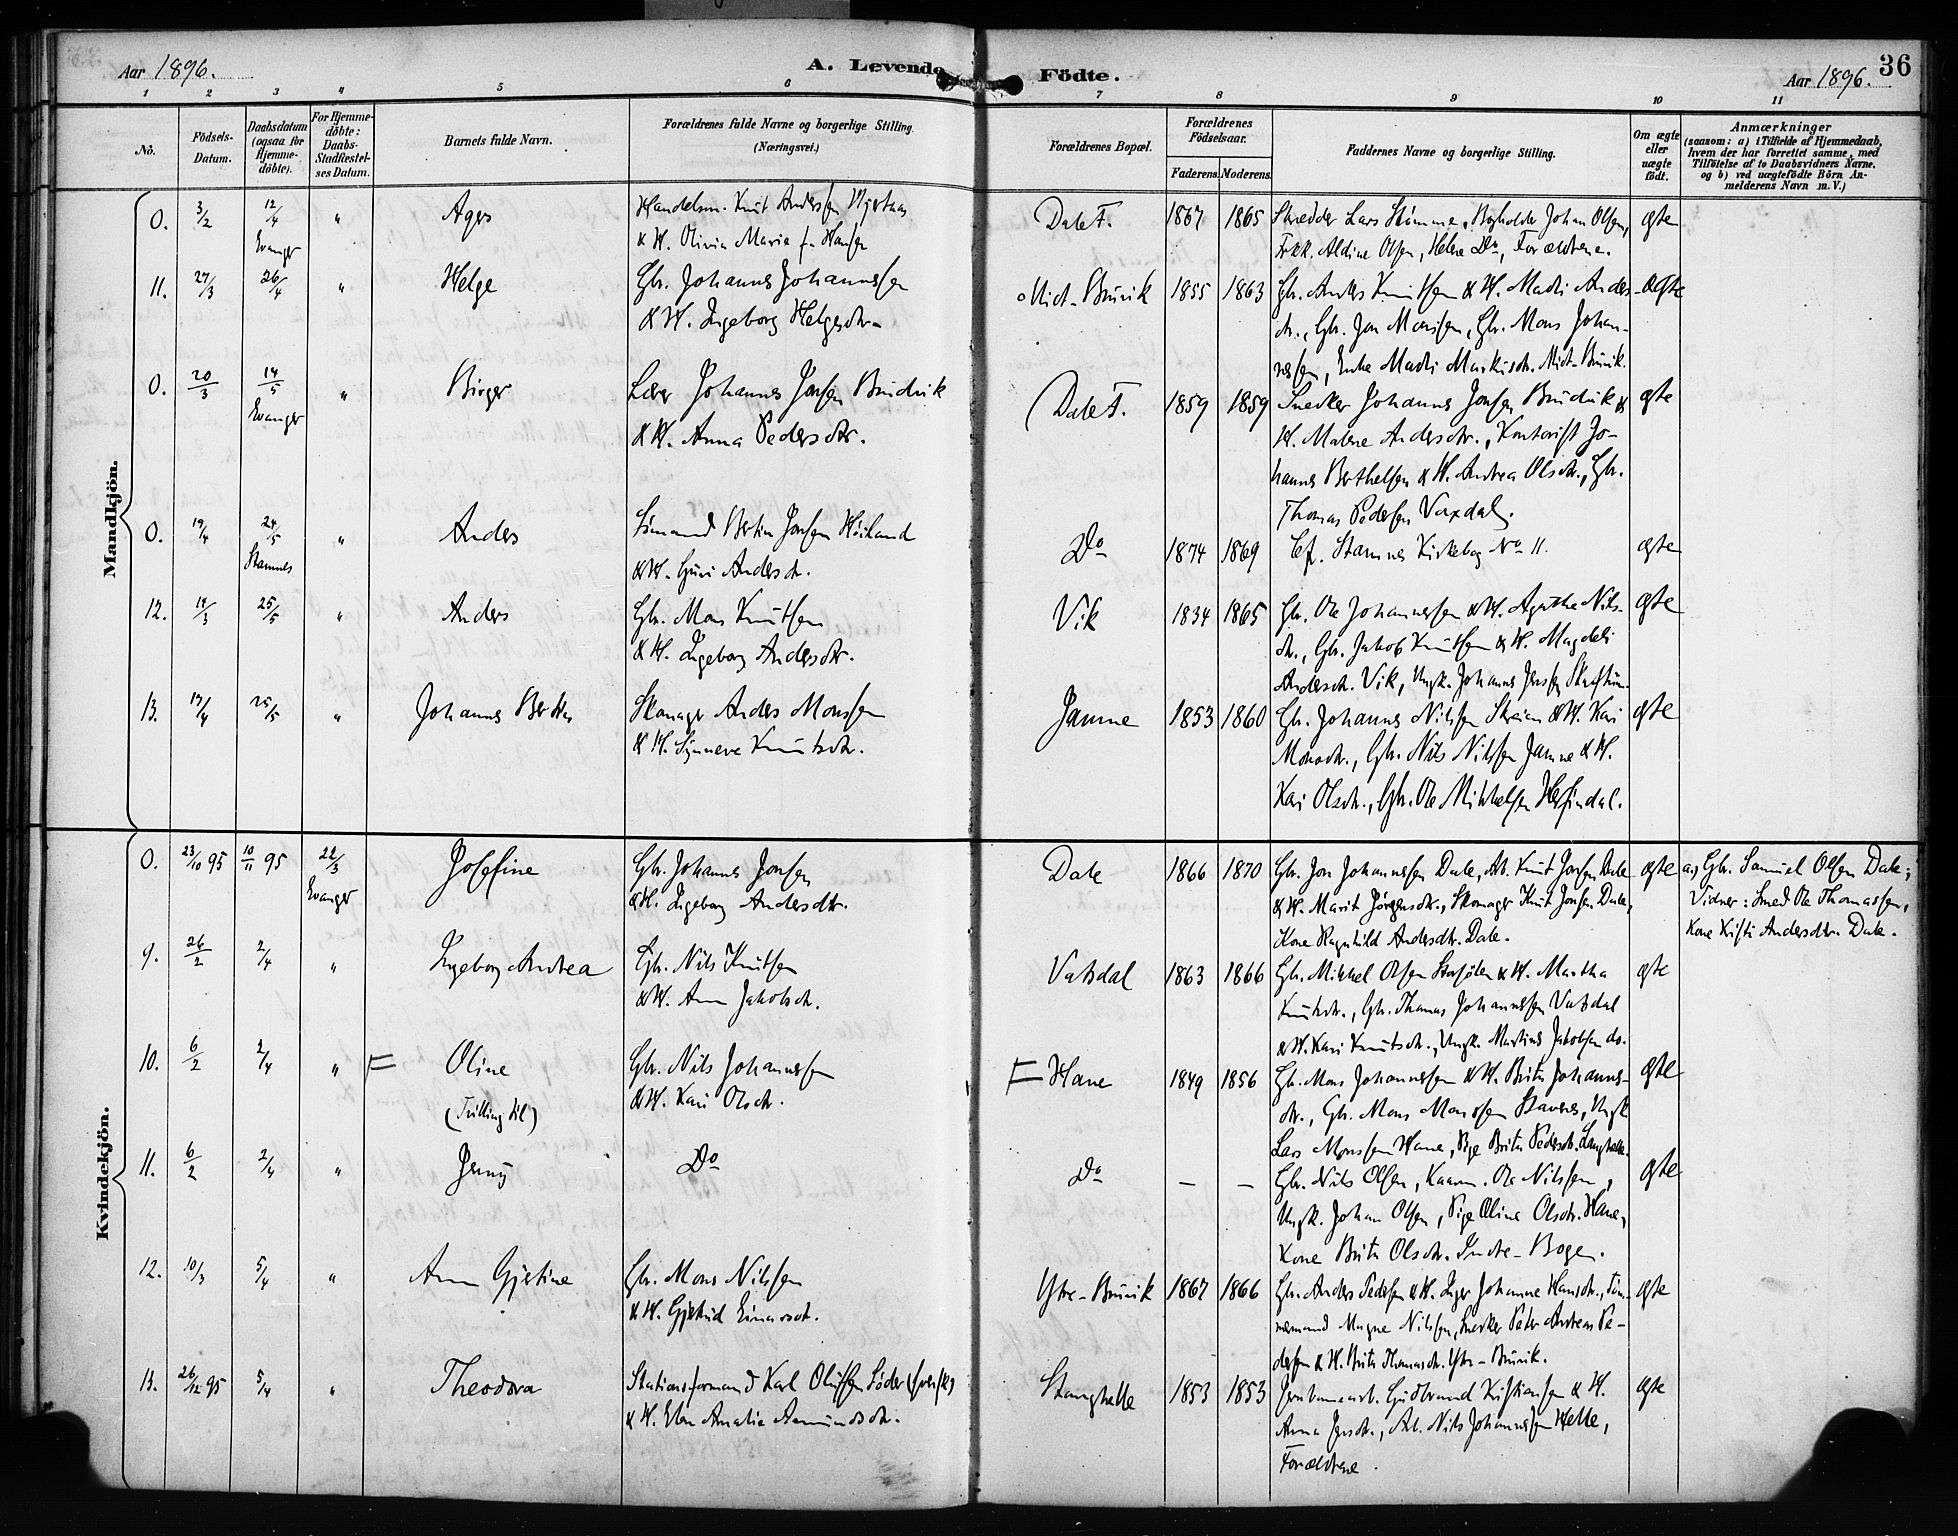 Aar 1896.
A. Levende Födte.
Aar 1896.
36
1 2 3 4 5 6 7 8 9 10 11
No.
Födsels-Datum.
Daabsdatum (ogsaa for Hjemme-döbte).
For Hjemme-döbte: Daabs-Stadfæstel-ses Datum.
Barnets fulde Navn.
Forældrenes fulde Navne og borgerlige Stilling.
(Næringsvei.)
Forældrenes Bopæl.
Forældrenes Födselsaar.
Faderens
Moderens
Faddernes Navne og borgerlige Stilling.
Om ægte eller uægte født.
Anmærkninger
(saasom: a) i Tilfælde af Hjemmedaab,
hvem der har forrettet samme, med
Tilföielse af to Daabsvidners Navne,
og b) ved uægtefödte Börn An-
melderens Navn m. V.)
Mandkjön.
0. 3/2 12/4 Evanger " Ages
Handelsm. Knut Anderssen
& H. Olivia Marie f. Hansen
Dale F. 1867 1865
Skrædder Lars Stømme, Johan Olsen,
Frkk. Aldine Olsen, Helene Do, Forældrene.
ægte
11. 27/3 26/4 " Helge
Gbr. Johannes Johannessen
& H. Ingeborg Helgesdtr.
Midt-Bruvik 1855 1863
Gbr. Anders Knutsen & H. Madli Anders-
dr., Gbr. Jon Monsen, Gbr. Mons Johan-
nessen, Enke Madli Midt-Bruvik.
Ægte
0. 20/3 14/5 Evanger " Birger
Lærer Johannes Jonsen Brudvik
& H. Anna Pedersdtr.
Dale F. 1859 1859
Snedker Johannes Jonsen Brudvik &
H. Malene Andersdtr., Kontorist Jo-
hannes Berthelsen & H. Andrea Olsdtr., Gbr.
Thomas Pedersen Vaxdal.
ægte
0. 19/4 24/5 Stamnes " Anders
Sømand Bertin Jonsen Høiland
& H. Guri Andersdr.
Do 1874 1869
Cf. Stamnes Kirkebog No 11.
ægte
12. 14/3 25/5 " Anders
Gbr. Mons Knutsen
& H. Ingeborg Andersdtr.
Vik 1834 1865
Gbr. Ole Johannessen & H. Agathe Nils-
dr., Gbr. Jakob Knutsen & H. Magdeli
Andersdr. Vik, Ungk. Johannes Jensen
ægte
13. 19/4 25/5 " Johannes
Skomager Anders Monsen
& H. Synneve Knutsdr.
Jamne 1853 1860
Gbr. Johannes Nilssen Skreien & H. Kari
Monsdr., Gbr. Nils Nilssen Jamne & H.
Kari Olsdr., Gbr. Ole Mikkelsen Herfindal.
ægte
Kvindekjön.
0. 23/10 95 10/11 95 22/3 Evanger Josefine
Gbr. Johannes Jonsen
& H. Ingeborg Andersdtr.
Dale 1866 1870
Gbr. Jon Johannessen Dale, Arb. Knut Jonsen Dale
& H. Marit Jørgensdtr., Skomager Knut Jonsen Dale,
Kone Ragnhild Andersdtr. Dale.
ægte
a., Gbr. Samuel Olsen Dale;
Vidner: Smed Ole Thomassen,
Kone Kisti Andersdtr. Dale.
9. 26/2 2/4 " Ingeborg Andrea
Gbr. Nils Knutsen
& H. Anna Jakobsdr.
Vatsdal 1863 1866
Gbr. Mikkel Olsen & H. Martha
Knutsdr., Gbr. Thomas Johannessen Vatsdal
& H. Kari Knutsdr., Ungk. Martinus Jakobsen do.
ægte
10. 6/2 2/4 " Oline
(Tvilling til)
Gbr. Nils Johannessen
& H. Kari Olsdr.
Hane 1849 1856
Gbr. Mons Johannessen & H. Brita Johannes-
dtr., Gbr. Mons Monssen Stavenes, Ungk.
Lars Monssen Hane, Pige Brita Pedersdr. Langhelle.
ægte
11. 6/2 2/4 " Jenny
Do
Do — —
Gbr. Nils Olsen, Kaarm. Ole Nilssen,
Ungk. Johan Olsen, Pige Oline Olsdtr. Hane,
Kone Brita Olsdr. Indre-Bogen.
ægte
12. 10/3 5/4 " Anna Gjertine
Gbr. Mons Nilssen
& H. Gjertrud Einarsdr.
Ytre-Bruvik 1867 1866
Gbr. Anders Pedersen & H. Inger Johanne Hansdr., Tøm-
mermand Magne Nilssen, Snedker Peter Andreas Pe-
dersen & H. Brita Thomasdr. Ytre-Bruvik.
ægte
13. 26/12 95 5/4 " Theodora
Stationsformand Karl Olufsen Söder (svensk)
& H. Elen Amalia Aamundsdtr.
Stanghelle 1853 1853
Jernbanearb. Gudbrand Kristiansen & H.
Anna Jensdr., Arb. Nils Johannessen Helle,
Forældrene.
ægte